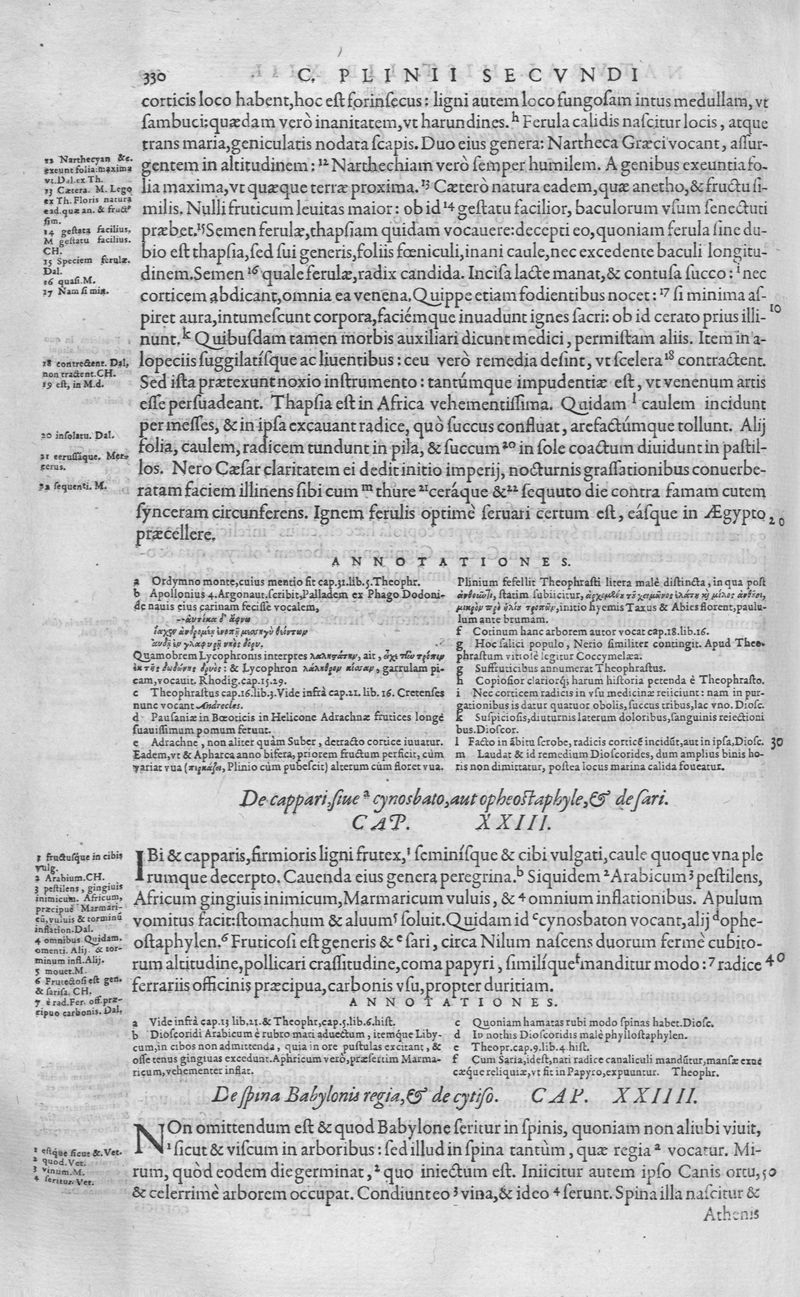 330 C. PLINII SECVNDI
corticis loco habent,hoc est forinsecus: ligni autem loco fungosam intus medullam, vt
sambuci:quædam verò inanitatem,vt harundines. h Ferula calidis nascitur locis, atque
trans maria,geniculatis nodata scapis. Duo eius genera: Nartheca Græci vocant, assur-
gentem in altitudinem: 12 Narthechiam verò semper humilem. A genibus exeuntia fo-
lia maxima,vt quæque terræ proxima. 13 Cæterò natura eadem,quæ anetho,& fructu si-
milis. Nulli fruticum leuitas maior: ob id 14 gestatu facilior, baculorum vsum senectuti
præbet. 15 Semen ferulæ,thapsiam quidam vocauere:decepti eo,quoniam ferula sine du-
bio est thapsia,sed sui generis,foliis fœniculi,inani caule,nec excedente baculi longitu-
dinem.Semen 16 quale ferulæ,radix candida. Incisa lacte manat,& contusa succo: i nec
corticem abdicant,omnia ea venena.Quippe etiam fodientibus nocet: 17 si minima as-
piret aura,intumescunt corpora,faciémque inuadunt ignes sacri: ob id cerato prius illi- 10
nunt. k Quibusdam tamen morbis auxiliari dicunt medici, permistam aliis. Item in a-
lopeciis suggilatísque ac liuentibus: ceu verò remedia desint, vt scelera 18 contractent.
Sed ista prætexunt noxio instrumento: tantúmque impudentiæ est, vt venenum artis
esse persuadeant. Thapsia est in Africa vehementissima. Quidam l caulem incidunt
per messes, & in ipsa excauant radice, quò succus confluat, arefactúmque tollunt. Alij
folia, caulem,radicem tundunt in pila, & succum 20 in sole coactum diuidunt in pastil-
los. Nero Cæsar claritatem ei dedit initio imperij, nocturnis grassationibus conuerbe-
ratam faciem illinens sibi cum m thure 21 ceráque & 22 sequuto die contra famam cutem
synceram circunferens. Ignem ferulis optimè seruari certum est, eásque in Ægypto 20
præcellere.
12 Narthecyan &c.
exeunt folia: maxima
vt. Dal. ex Th.
13 Cætera. M. Lego
ex Th. Floris natura
ead. quæ an. & fruct°
sim.
14 gestata facilius,
M gestatu facilius.
CH.
15 Speciem ferulæ.
Dal.
16 quasi. M.
17 Nam si min.
18 contrectent. Dal,
non tractent. CH.
19 est, in M.d.
20 insolatu. Dal.
22 sequenti. M.
ANNOTATIONES.
a Ordymno monte,cuius mentio fit cap.31.lib.5.Theophr.
b Apollonius 4.Argonaut.scribit,Palladem ex Phago Dodoni-
de nauis eius carinam fecisse vocalem,
Quamobrem Lycophronis interpres
& Lycophron garrulam pi-
cam,vocauit. Rhodig.cap.15.29.
c Theophrastus cap.16.lib.3. Vide infrà cap.21. lib. 16. Cretenses
nunc vocant Andrecles.
d Pausanias in Bœoticis in Helicone Adrachnæ frutices longè
suauissimum pomum ferunt.
e Adrachne, non aliter quàm Suber, detracto cortice iuuatur.
Eadem,vt & Apharca anno bifera,priorem fructum perficit, cùm
variat vua ( Plinio cùm pubescit) alterum cùm floret vua.
Plinium fefellit Theophrasti litera malè distincta, in qua post
statim subiicitur,
initio hyemis Taxus & Abies florent,paulu-
lum ante brumam.
f Cotinum hanc arborem autor vocat cap.18.lib.16.
g Hoc salici populo, Nerio similiter contingit. Apud Theo-
phrastum vitiosè legitur Coccymelæa:
g Suffruticibus annumerat Theophrastus.
h Copiosior clariorq; harum historia petenda è Theophrasto.
i Nec corticem radicis in vsu medicinæ reiiciunt: nam in pur-
gationibus is datur quatuor obolis, succus tribus,lac vno. Diosc.
k Suspiciosis,diuturnis laterum doloribus,sanguinis reiectioni
bus.Dioscor.
l Facto in ábitu scrobe, radicis corticē incidūt,aut in ipsa,Diosc. 30
m Laudat & id remedium Dioscorides, dum amplius binis ho-
ris non dimittatur, postea locus marina calida foueatur.
De cappari,siue a cynosbato,aut opheostaphyle,& de sari.
CAP. XXIII.
IBi & capparis,firmioris ligni frutex, 1 seminísque & cibi vulgati,caule quoque vna ple
rumque decerpto. Cauenda eius genera peregrina. b Siquidem 2 Arabicum 3 pestilens,
Africum gingiuis inimicum,Marmaricum vuluis, & 4 omnium inflationibus. Apulum
vomitus facit:stomachum & aluum 5 soluit.Quidam id c cynosbaton vocant,alij d ophe-
ostaphylen. 6 Fruticosi est generis & e sari, circa Nilum nascens duorum fermè cubito-
rum altitudine,pollicari crassitudine,coma papyri, similíque f manditur modo: 7 radice 40
ferrariis officinis præcipua,carbonis vsu,propter duritiam.
1 fructusque in cibis
vulg.
2 Arabium.CH.
3 pestilens, gingiuis
inimicum. Africum,
præcipuè Marmari-
cū, vuluis & torminū
inflation.Dal.
4 omnibus Quidam.
omenti. Alij. & tor-
minum infl.Alij.
5 mouet.M.
6 Frutectosi est gen.
& sarisa. CH.
7 è rad.Fer. off.præ-
cipuo carbonis. Dal.
ANNOTATIONES.
a Vide infrà cap.13 lib.21.& Theophr,cap.5.lib.6.hist.
b Dioscoridi Arabicum è rubro mari aduectum, itemque Liby-
cum,in cibos non admittenda, quia in ore pustulas excitant, &
osse tenus gingiuas excedunt.Aphricum verò,præsertim Marma-
ricum,vehementer inflat.
c Quoniam hamatas rubi modo spinas habet.Diosc.
d Io nothis Dioscoridis malè phyllostaphylen.
e Theopr.cap.9.lib.4 hist.
f Cum Saria,idest,nati radice canaliculi mandūtur,mansæ exue
cæque reliquiæ,vt fit in Papyro,expuuntur. Theophr.
De spina Babylonis regia,& de cytiso. CAP. XXIIII.
NOn omittendum est & quod Babylone seritur in spinis, quoniam non aliubi viuit,
1 sicut & viscum in arboribus: sed illud in spina tantùm, quæ regia a vocatur. Mi-
rum, quòd eodem die germinat, 2 quo iniectum est. Iniicitur autem ipso Canis ortu, 50
& celerrimè arborem occupat. Condiunt eo 3 vina,& ideo 4 serunt. Spina illa nascitur &
1 estque sicut &.Vet.
2 quod.Vet.
3 vinum.M.
4 seritur.Vet.
Athenis